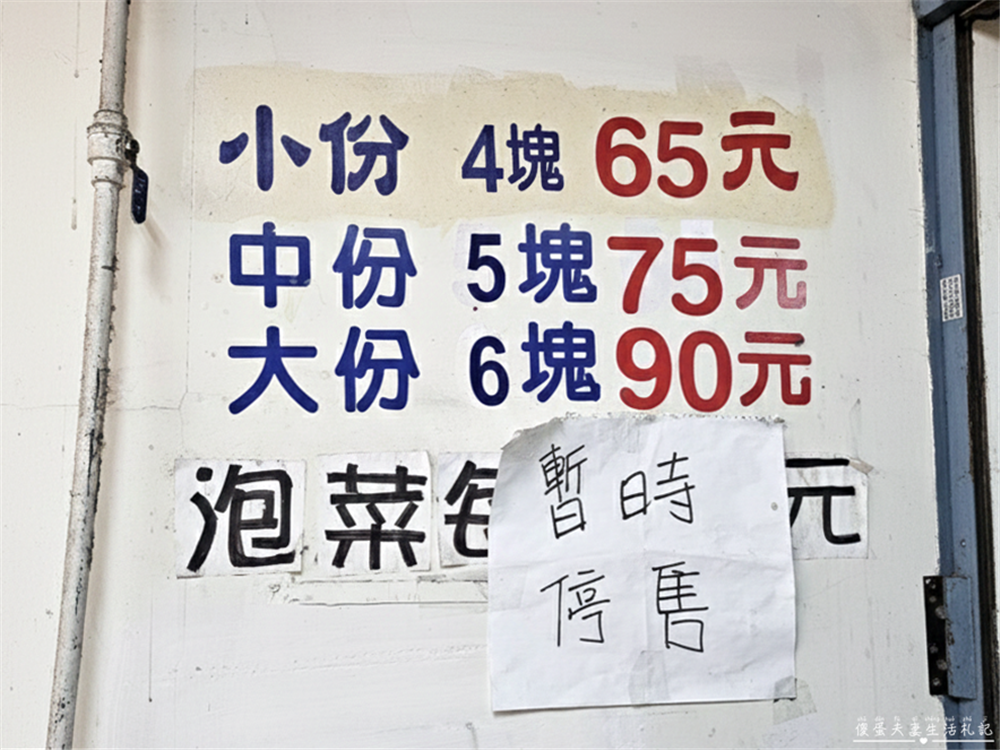 小份 4塊 65元
中份 5塊 75元
大份 6塊 90元
泡菜每 元
暫時
停售
傻蛋夫妻生活札記